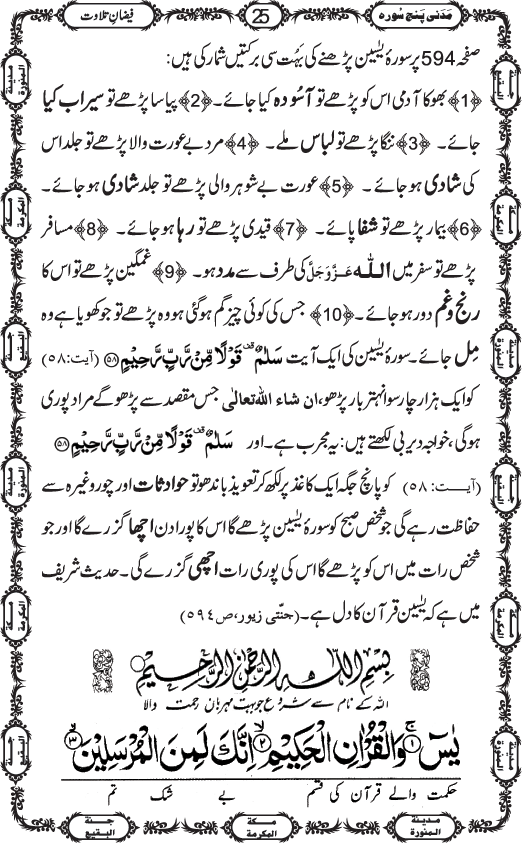 مَدَنی پَنج سُورہ
25
فیضانِ تلاوت
صفحہ 594 پر سورۂ یٰسین پڑھنے کی بہُت سی برکتیں شمار کی ہیں:
﴿1﴾ بھوکا آدمی اس کو پڑھے تو آسُودہ کیا جائے۔﴿2﴾ پیاسا پڑھے تو سیراب کیا
جائے۔ ﴿3﴾ ننگا پڑھے تو لباس ملے۔ ﴿4﴾ مرد بے عورت والا پڑھے تو جلد اس
کی شادی ہو جائے ۔ ﴿5﴾ عورت بے شوہر والی پڑھے تو جلد شادی ہو جائے۔
﴿6﴾ بیمار پڑھے تو شفا پائے۔ ﴿7﴾ قیدی پڑھے تو رہا ہو جائے۔ ﴿8﴾ مسافر
پڑھے تو سفر میں اللہ عَزَّوَجَلَّ کی طرف سے مدد ہو۔ ﴿9﴾ غمگین پڑھے تو اس کا
رنج و غم دور ہو جائے۔﴿10﴾ جس کی کوئی چیز گم ہو گئی ہو وہ پڑھے تو جو کھویا ہے وہ
مِل جائے۔ سورۂ یٰسین کی ایک آیت سَلٰمٌ ۟ قَوْلًا مِّنْ رَّبٍّ رَّحِیْمٍ ﴿۵۸﴾ (آیت:۵۸)
کو ایک ہزار چار سو انہتر بار پڑھو، ان شاء اللہ تعالٰی جس مقصد سے پڑھو گے مراد پوری
ہو گی، خواجہ دیربی لکھتے ہیں: یہ مجرب ہے۔ اور سَلٰمٌ ۟ قَوْلًا مِّنْ رَّبٍّ رَّحِیْمٍ ﴿۵۸﴾
(آیت:۵۸) کو پانچ جگہ ایک کاغذ پر لکھ کر تعویذ باندھو تو حوادثات اور چور وغیرہ سے
حفاظت رہے گی جو شخص صبح کو سورۂ یٰسین پڑھے گا اس کا پورا دن اچھا گزرے گا اور جو
شخص رات میں اس کو پڑھے گا اس کی پوری رات اچھی گزرے گی۔ حدیث شریف
میں ہے کہ یٰسین قرآن کا دل ہے۔ (جنّتی زیور، ص ۵۹٤)
بِسْمِ اللّٰهِ الرَّحْمٰنِ الرَّحِیْمِ
اللہ کے نام سے شروع جو بہت مہربان رحمت والا
یٰسٓ ﴿۱﴾ وَالْقُرْاٰنِ الْحَکِیْمِ ﴿۲﴾ اِنَّکَ لَمِنَ الْمُرْسَلِیْنَ ﴿۳﴾
حکمت والے قرآن کی قسم بے شک تم
مدینۃ المنورۃ
جنۃ البقیع
مکۃ المکرمۃ
مکۃ المکرمۃ
جنۃ البقیع
مدینۃ المنورۃ
مدینۃ المنورۃ
جنۃ البقیع
مکۃ المکرمۃ
مکۃ المکرمۃ
جنۃ البقیع
مدینۃ المنورۃ
مدینۃ المنورۃ
مکۃ المکرمۃ
جنۃ البقیع